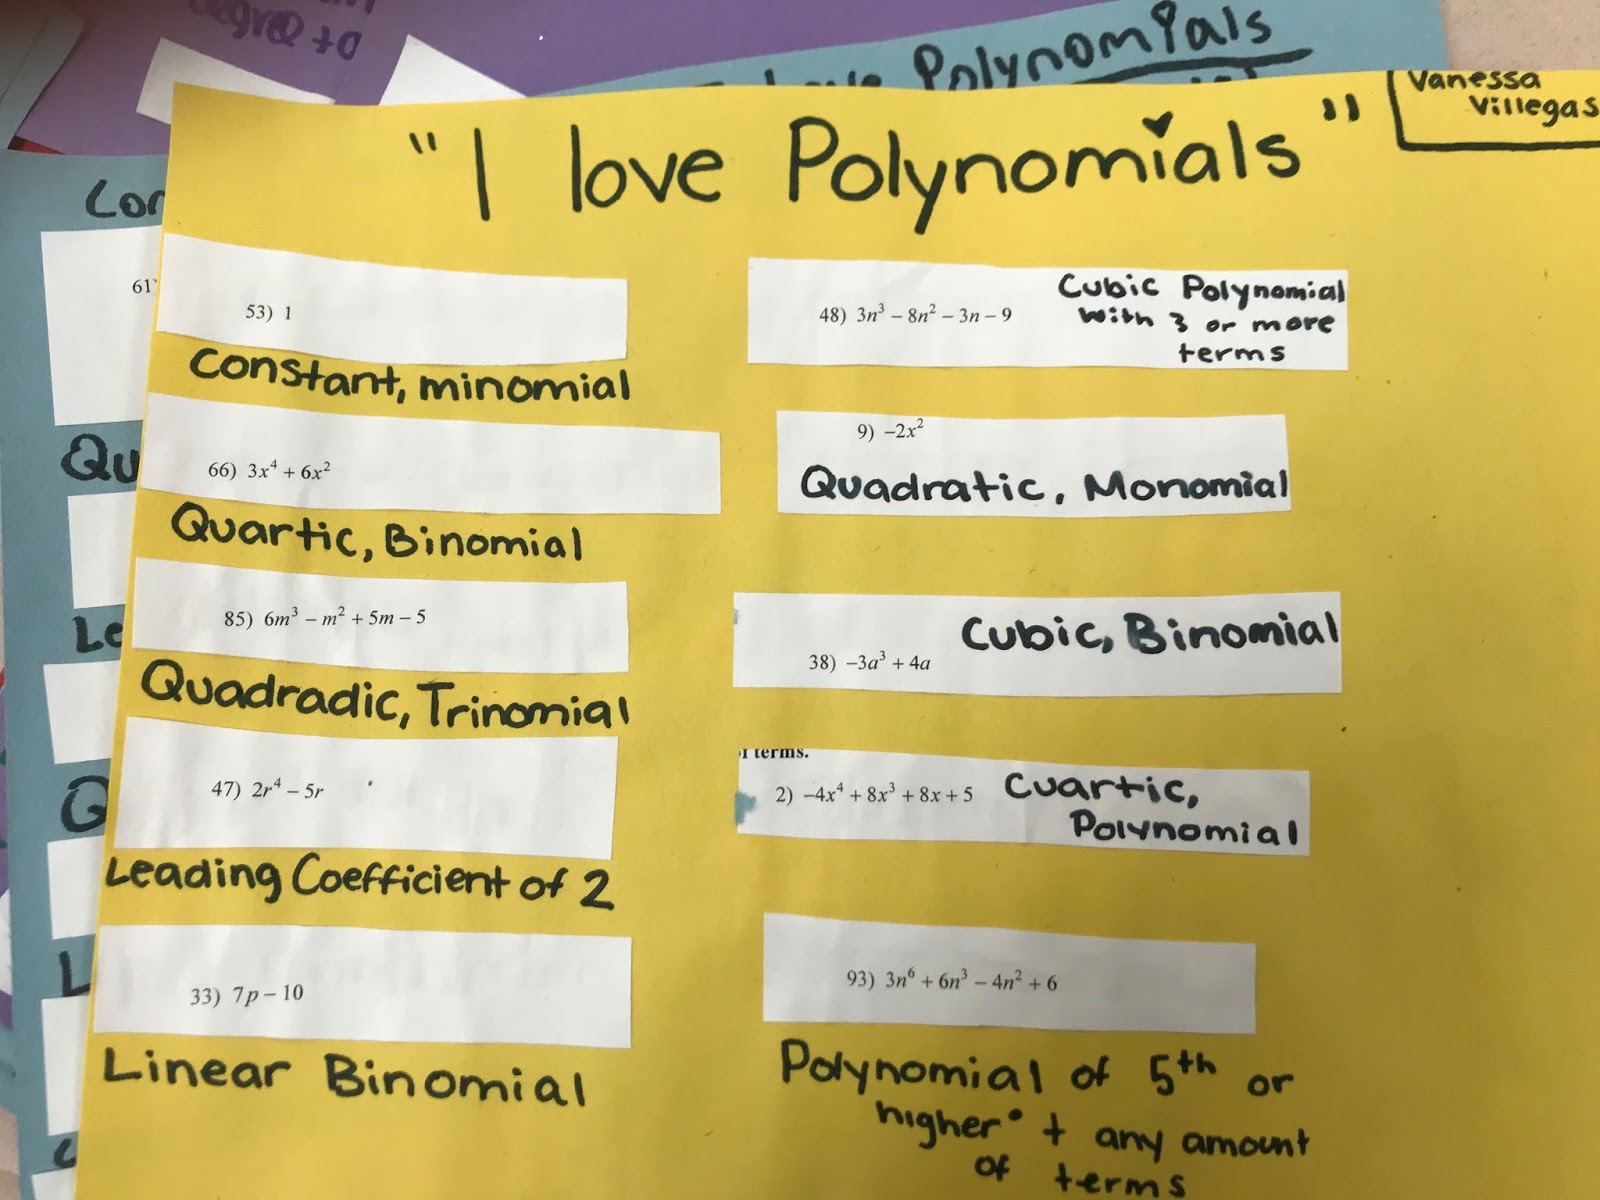 degree to
love Polynomials
Vanessa
Villegas
"I love Polynomials"
53) 1
Constant, minomial
66) 3x⁴ + 6x²
Quartic, Binomial
85) 6m³ – m² + 5m – 5
Quadradic, Trinomial
47) 2r⁴ – 5r
Leading Coefficient of 2
33) 7p – 10
Linear Binomial
48) 3n³ – 8n² – 3n – 9
Cubic Polynomial
with 3 or more
terms
9) –2x²
Quadratic, Monomial
Cubic, Binomial
38) –3a³ + 4a
terms.
2) –4x⁴ + 8x³ + 8x + 5
Cuartic,
Polynomial
93) 3n⁶ + 6n³ – 4n² + 6
Polynomial of 5th or
higher° + any amount
of terms
61)